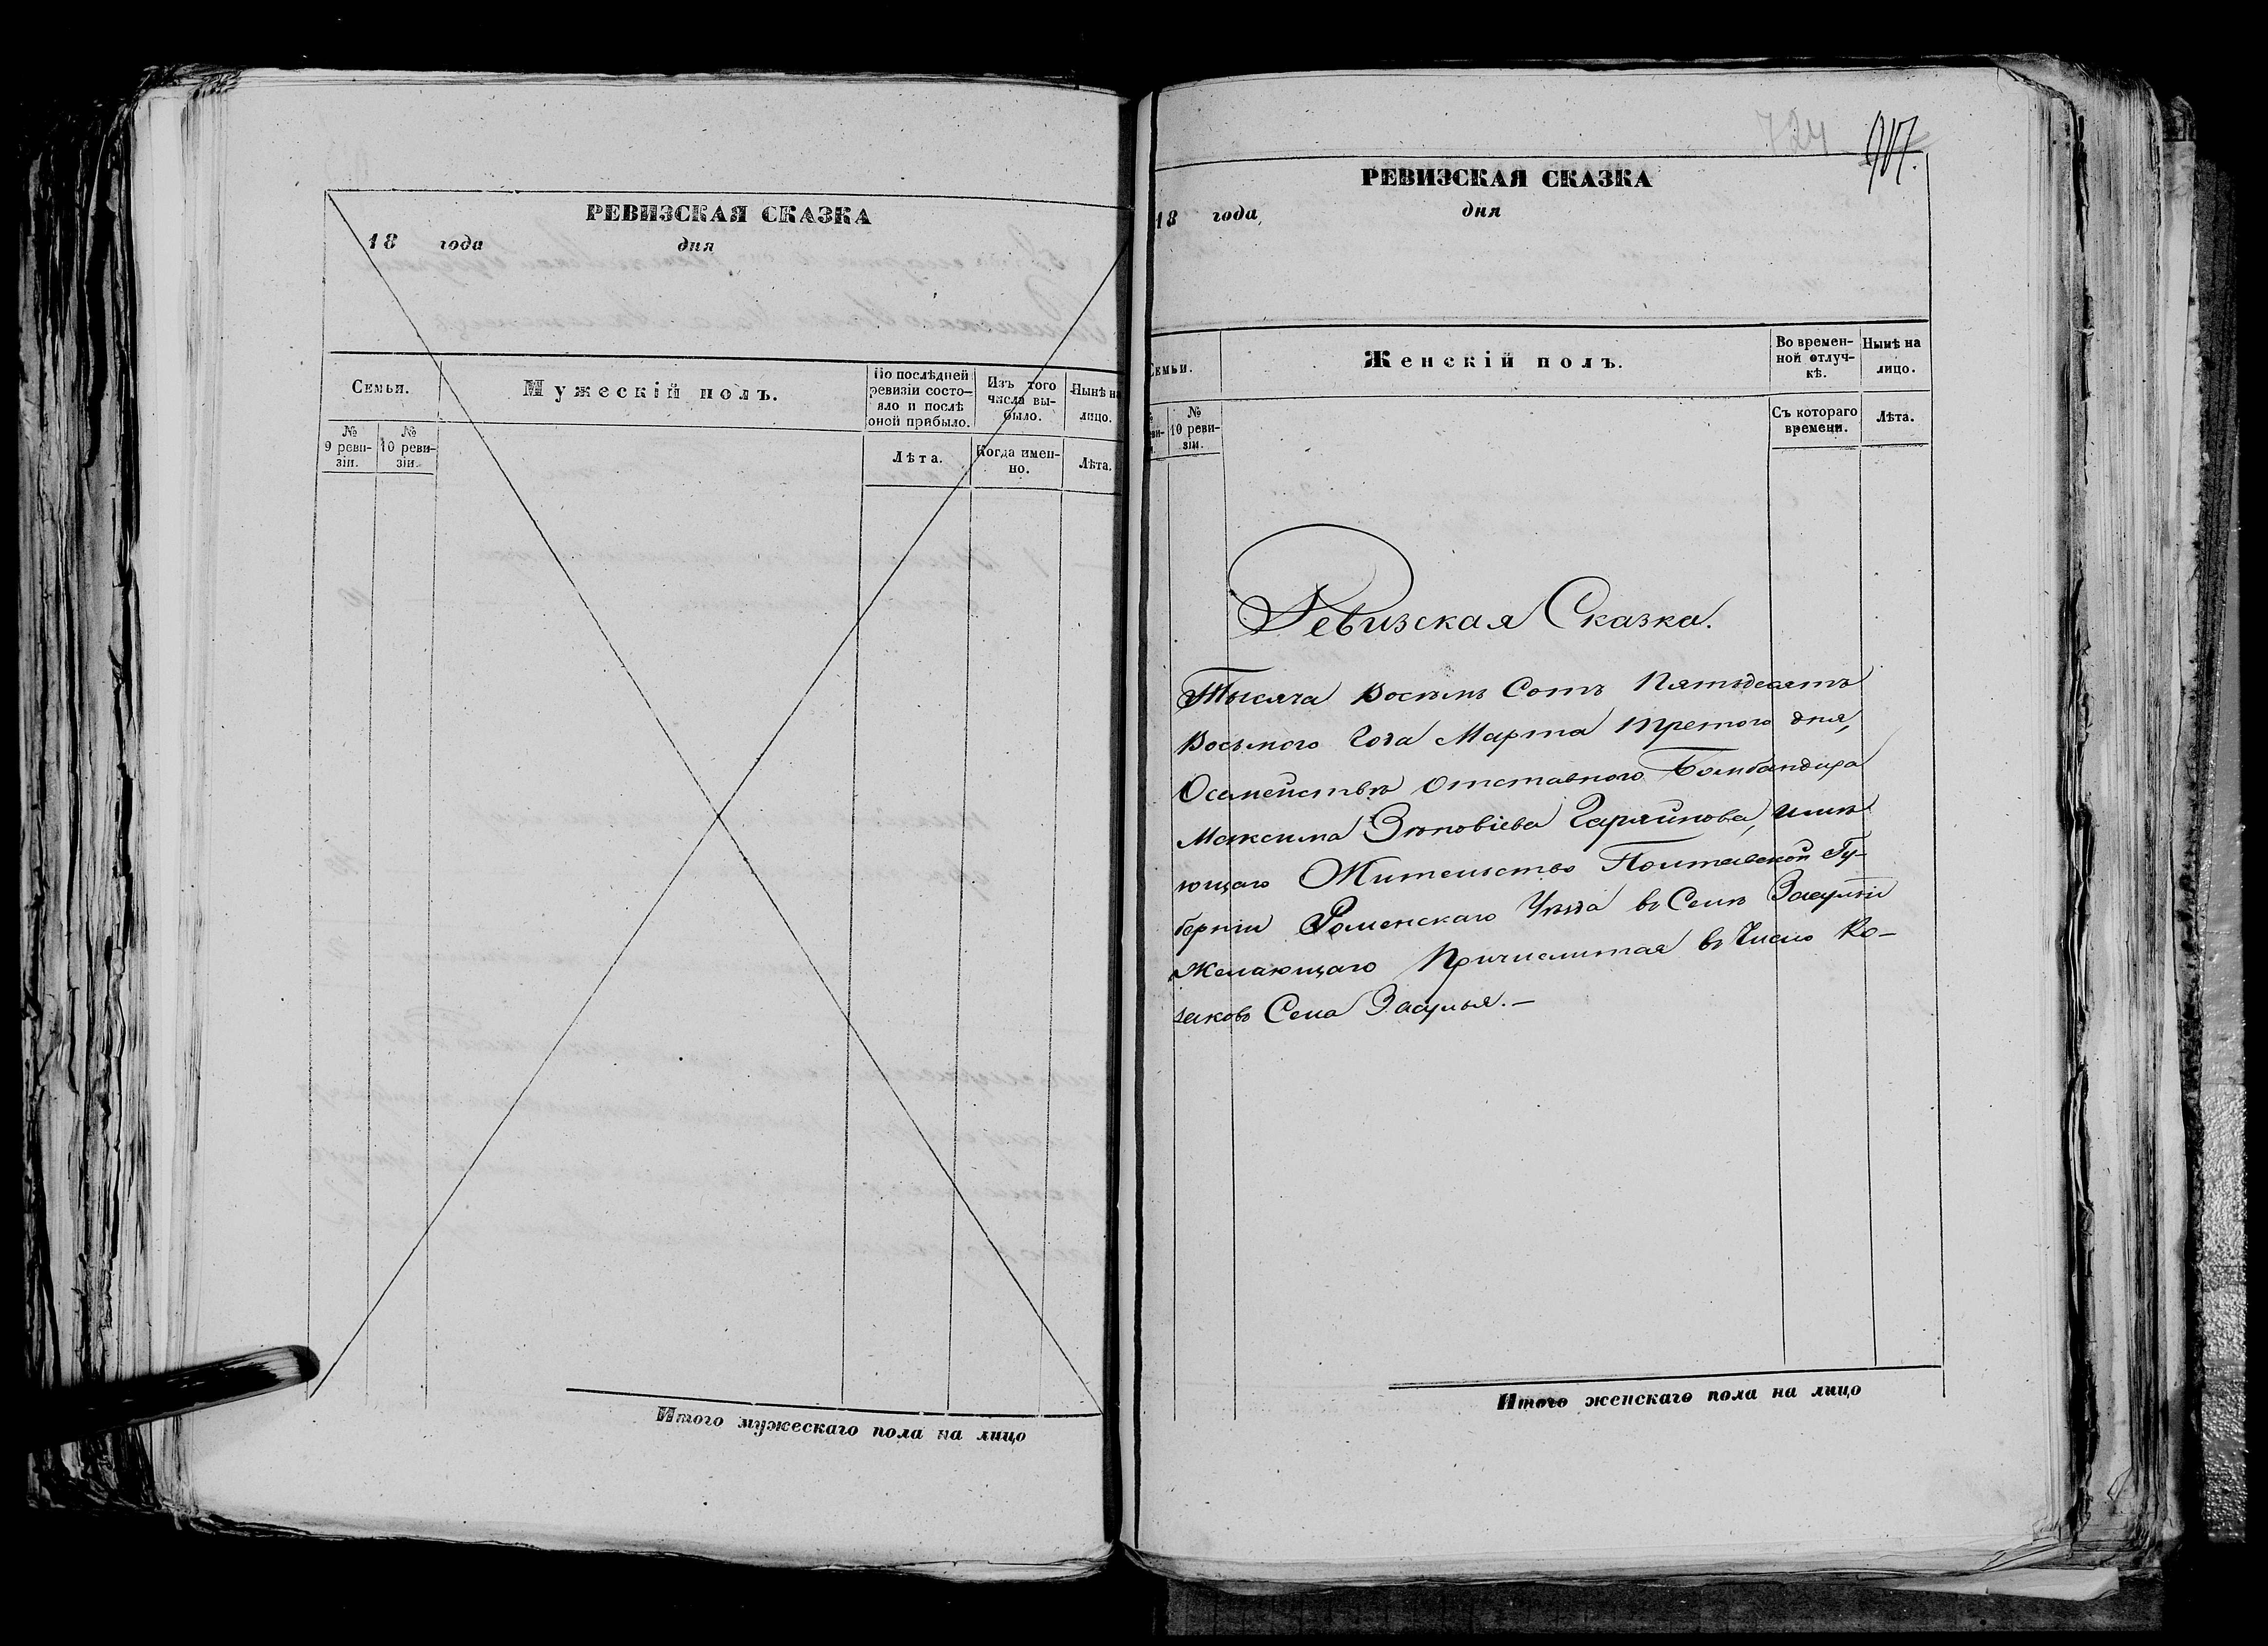 РЕВИЗСКАЯ СКАЗКА
18 года дня
Семьи.
Мужескій полъ.
По послѣдней ревизіи состо-
яло и послѣ
оной прибыло.
Изъ того
числа вы-
было.
Нынѣ на
лицо.
№
9 реви-
зіи.
№
10 реви-
зіи.
Лѣта.
Когда имен-
но.
Лѣта.
Итого мужескаго пола на лицо
724
РЕВИЗСКАЯ СКАЗКА
18 года дня
Семьи.
Женскій полъ.
Во времен-
ной отлуч-
кѣ.
Нынѣ на
лицо.
№
10 реви-
зіи.
Съ котораго
времени.
Лѣта.
Ревизская Сказка.
Тысяча Восемь Сотъ Пятьдесятъ
Восьмого Года Марта Третого дня,
Осемействѣ Отставного Бомбандира
Максима Зѣновіева имѣ
ющаго Жительство Полтавской Гу-
берніи Роменскаго Уѣзда въ Селѣ Засульи
Желающаго Причислится въ Число Ко-
заковъ Села Засулья.—
Итого женскаго пола на лицо